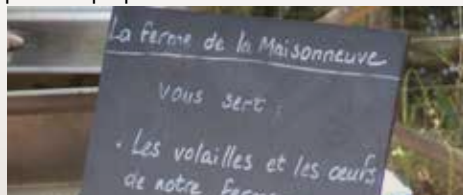 La Ferme de la Maisonneuve
vous sert :
• Les volailles et les œufs
de notre ferme